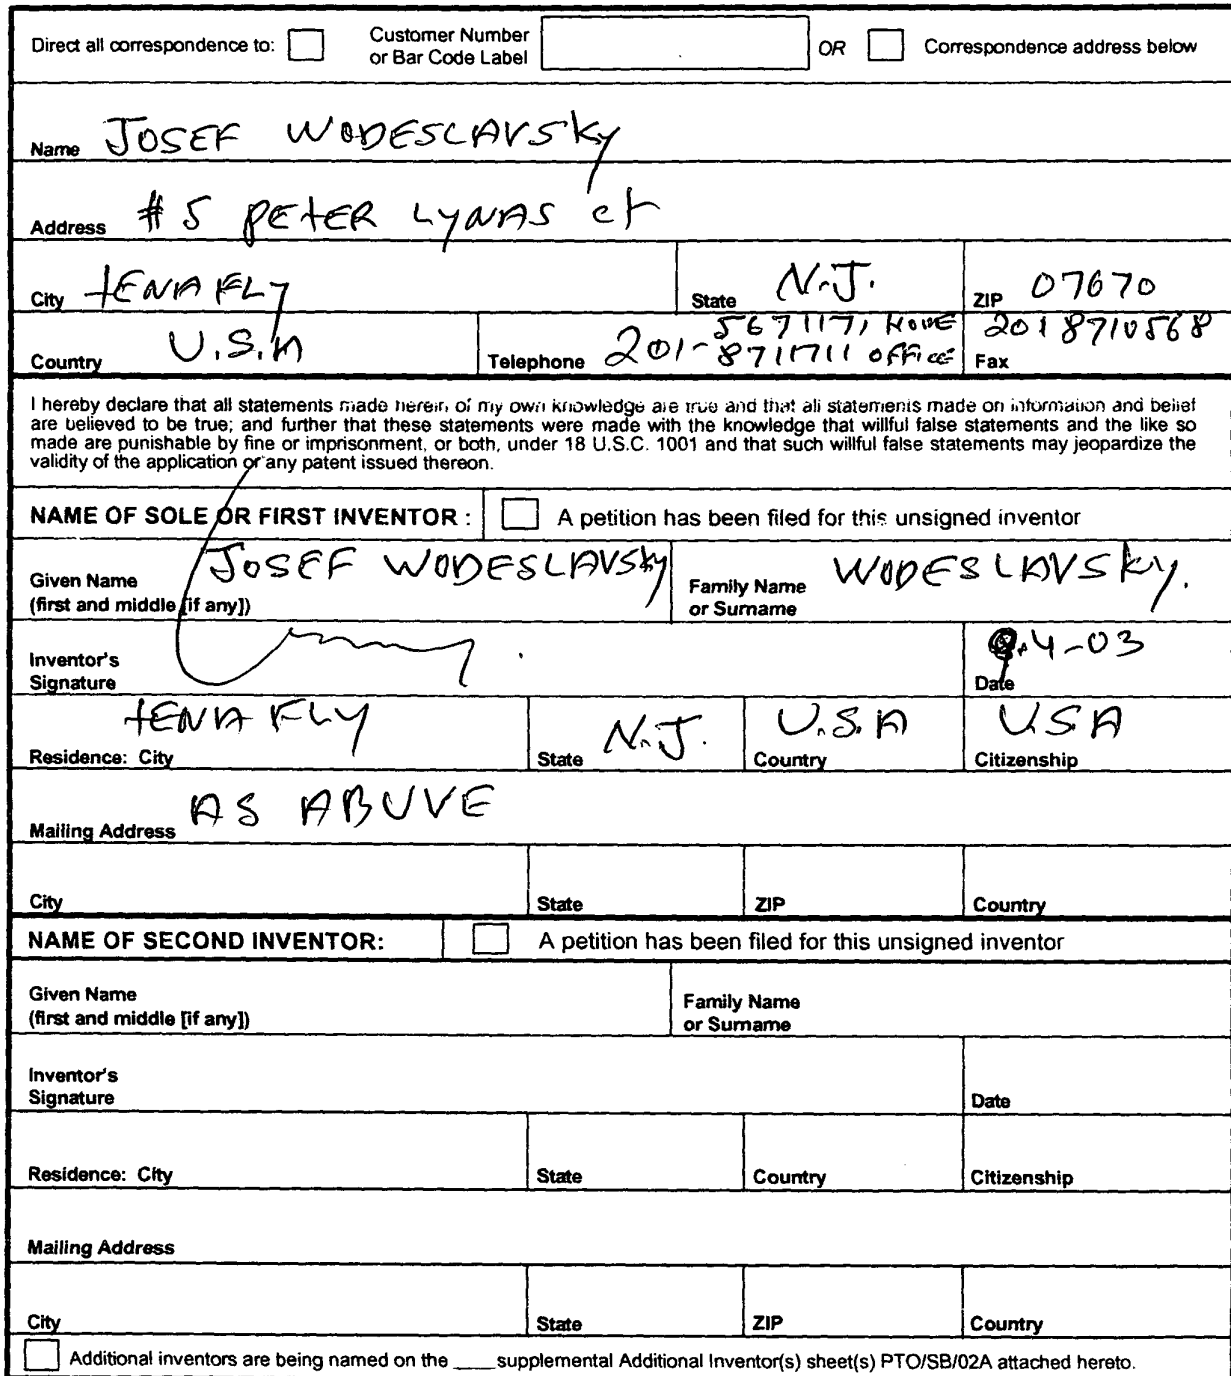 Direct all correspondence to: Customer Number or Bar Code Label OR Correspondence address below
Name JOSEF WODESLAVSKY
Address # 5 PETER LYNAS ct
City tENAFLY State N.J. ZIP 07670
Country U.S.A Telephone 201- 5671171 HOME 8711711 OFFICE Fax 2018710568
I hereby declare that all statements made herein of my own knowledge are true and that all statements made on information and belief
are believed to be true; and further that these statements were made with the knowledge that willful false statements and the like so
made are punishable by fine or imprisonment, or both, under 18 U.S.C. 1001 and that such willful false statements may jeopardize the
validity of the application or any patent issued thereon.
NAME OF SOLE OR FIRST INVENTOR : A petition has been filed for this unsigned inventor
Given Name (first and middle [if any]) JOSEF WODESLAVSKY Family Name or Surname WODESLAVSKY.
Inventor's Signature Date 4-03
Residence: City tENAFLY State N.J. Country U.S.A Citizenship U.S.A
Mailing Address AS ABUVE
City State ZIP Country
NAME OF SECOND INVENTOR: A petition has been filed for this unsigned inventor
Given Name (first and middle [if any]) Family Name or Surname
Inventor's Signature Date
Residence: City State Country Citizenship
Mailing Address
City State ZIP Country
Additional inventors are being named on the ____ supplemental Additional Inventor(s) sheet(s) PTO/SB/02A attached hereto.